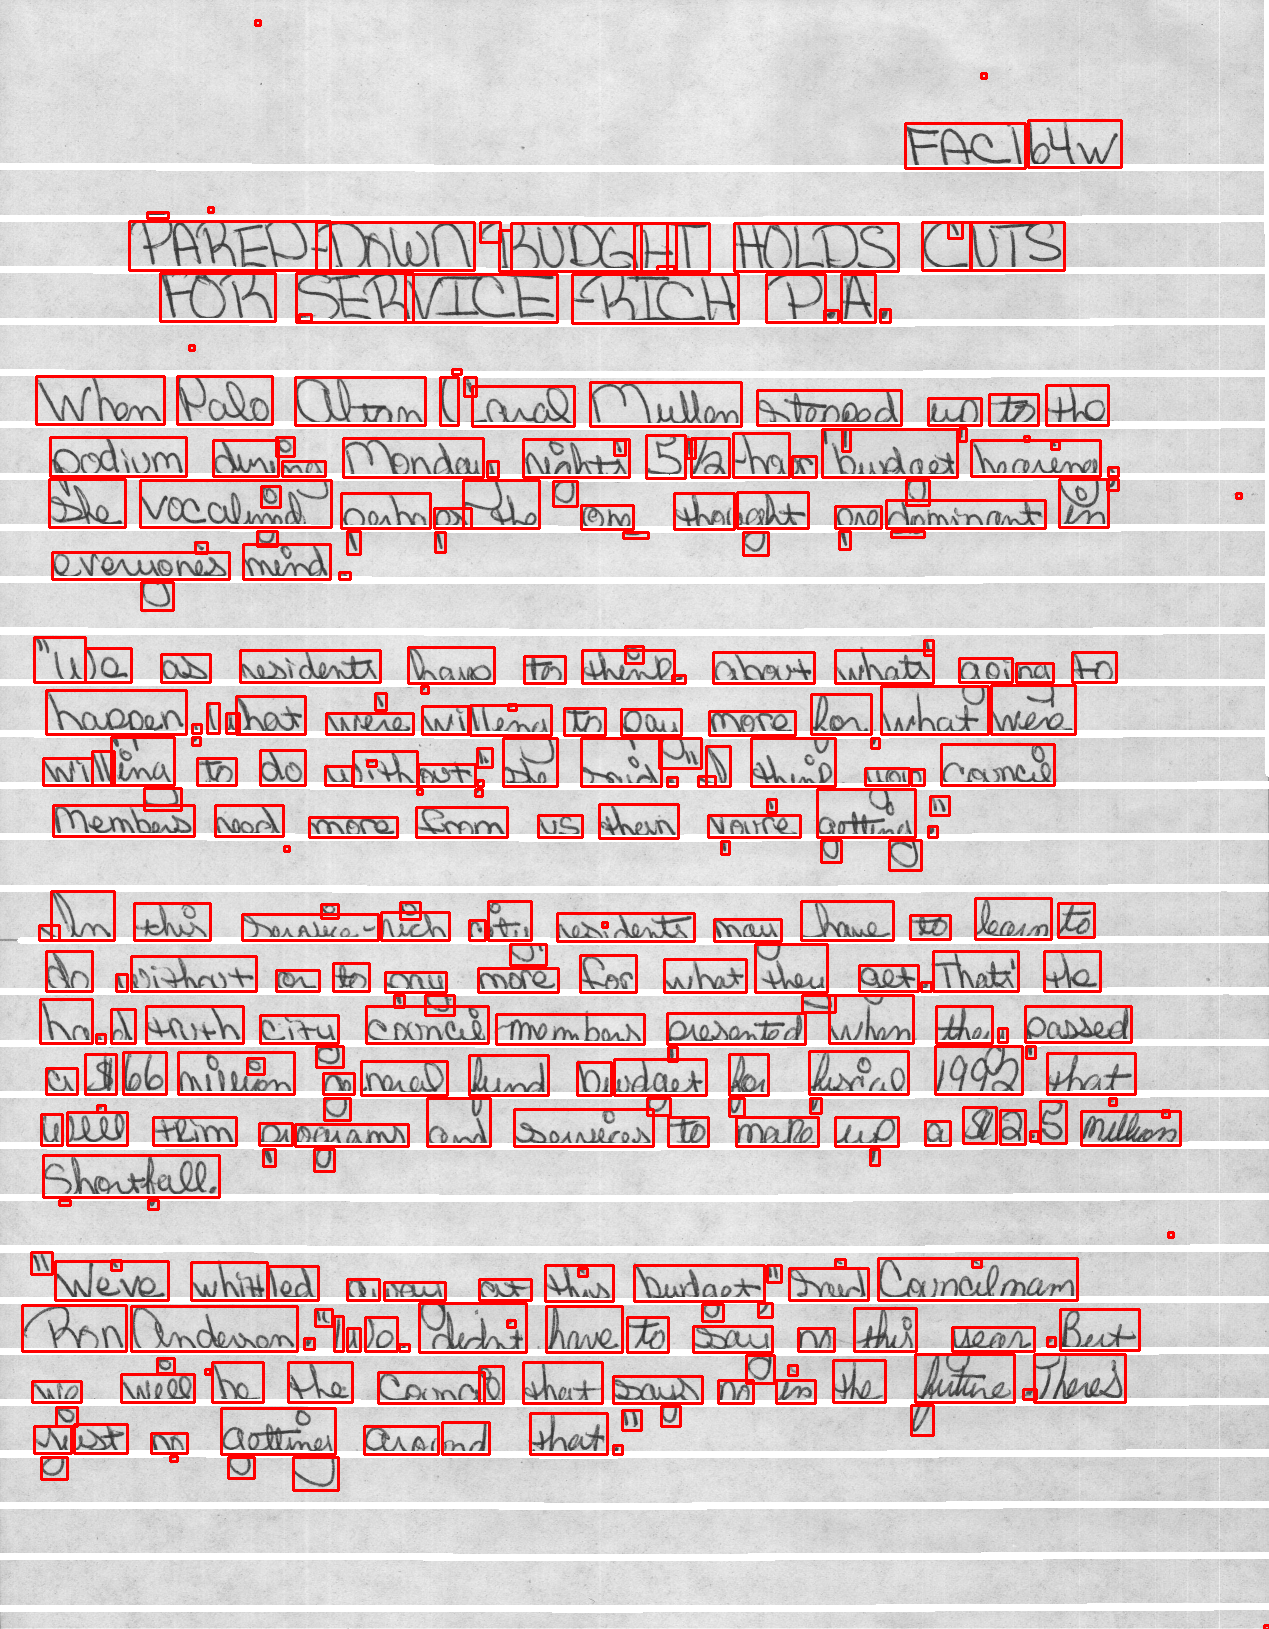 FAC164W
PARED-DOWN BUDGET HOLDS CUTS
FOR SERVICE-RICH P.A.
When Palo Altan Carol Mullen stepped up to the
podium during Monday night's 5 1/2-hour budget hearing
She vocalized perhaps the one thought predominant in
everyone's mind.
"We as residents have to think about what's going to
happen, what we're willing to pay more for, what we're
willing to do without," she said. "I think you council
members need more from us then you're getting."
In this service-rich city, residents may have to learn to
do without or to pay more for what they get. That's the
hard truth city council members presented when they passed
a $66 million general fund budget for fiscal 1992 that
will trim programs and services to make up a $2.5 million
Shortfall.
"We've whittled away at this budget" said Councilmam
Ron Anderson. "We didn't have to say no this year. But
we will be the Council that says no in the future. There's
just no getting around that."